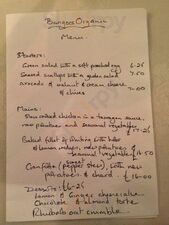 Bangors Organic
Menu
Starters:
Green salad with a soft poached egg 6.25
Seared scallops with a green salad 7.50
Avocado & walnut & cream cheese 7.00
& chives
Mains:
chicken in a tarragon sauce,
new potatoes, and seasonal vegetables
£17.25
Baked fillet of whiting with
& lemon, new potatoes
seasonal vegetables £16.50
(pepper stew), with new
potatoes & chard. £16.00
Desserts: £6.25
Lemon & Ginger cheesecake
Chocolate & almond torte
Rhubarb oat crumble